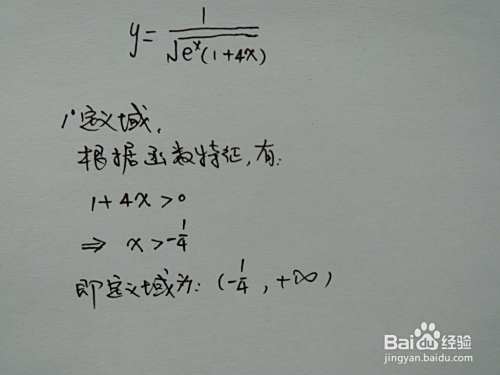 y = 1/√(eˣ(1+4x))
1° 定义域,
根据函数特征,有:
1+4x>0
⇒ x>-1/4
即定义域为: (-1/4, +∞)
Baidu经验
jingyan.baidu.com